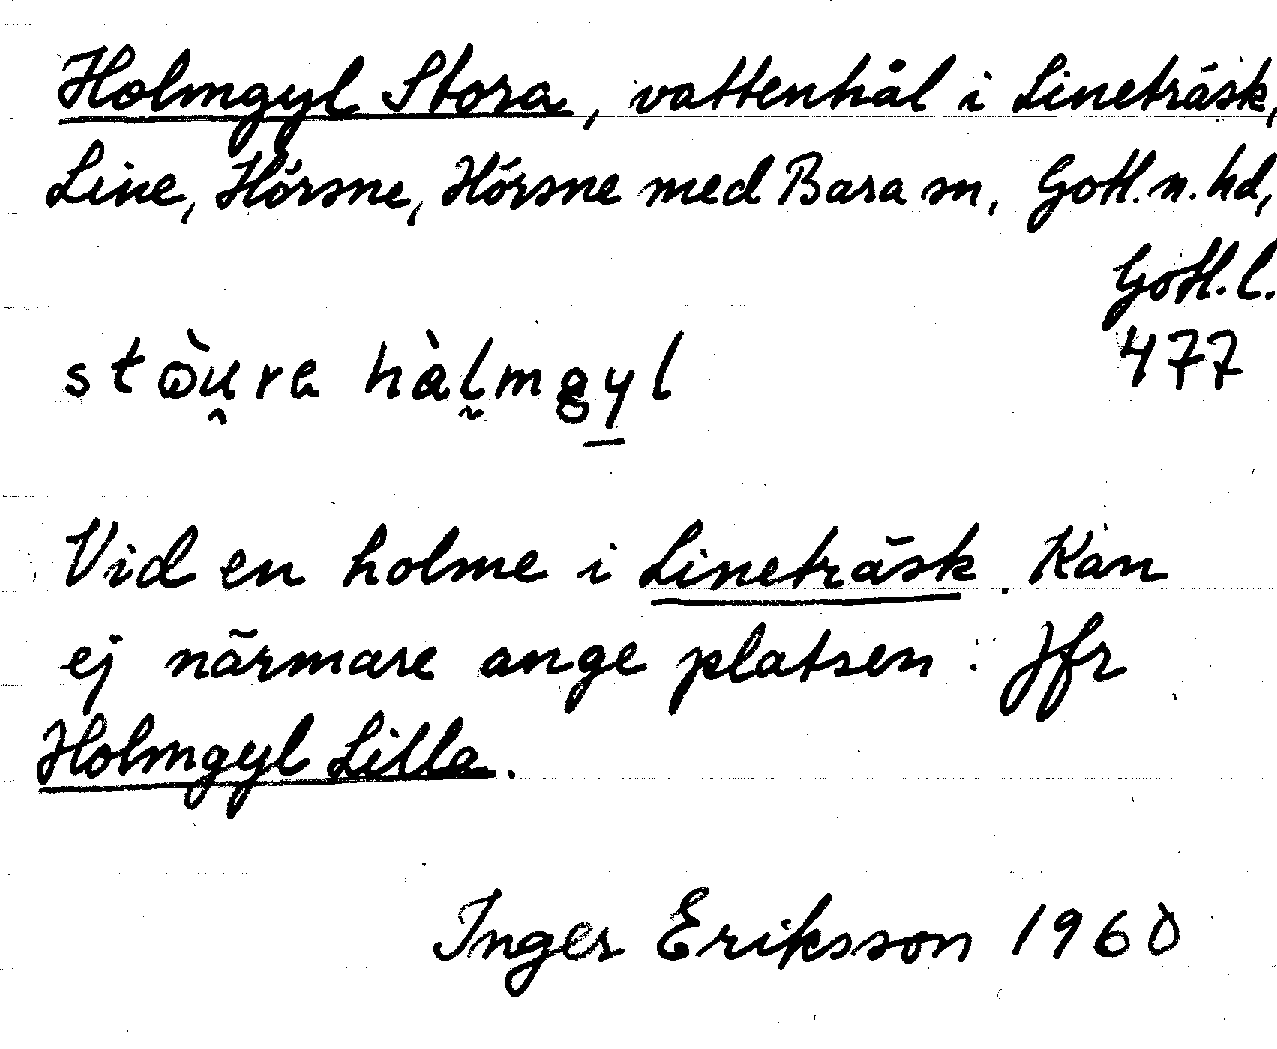 Holmgyl Stora, vattenhål i Lineträsk,
Line, Hörsne, Hörsne med Bara sn, Gotl. n. hd,
Gotl. l.
477
Vid en holme i Lineträsk. Kan
ej närmare ange platsen. Jfr
Holmgyl Lilla.
Inger Eriksson 1960